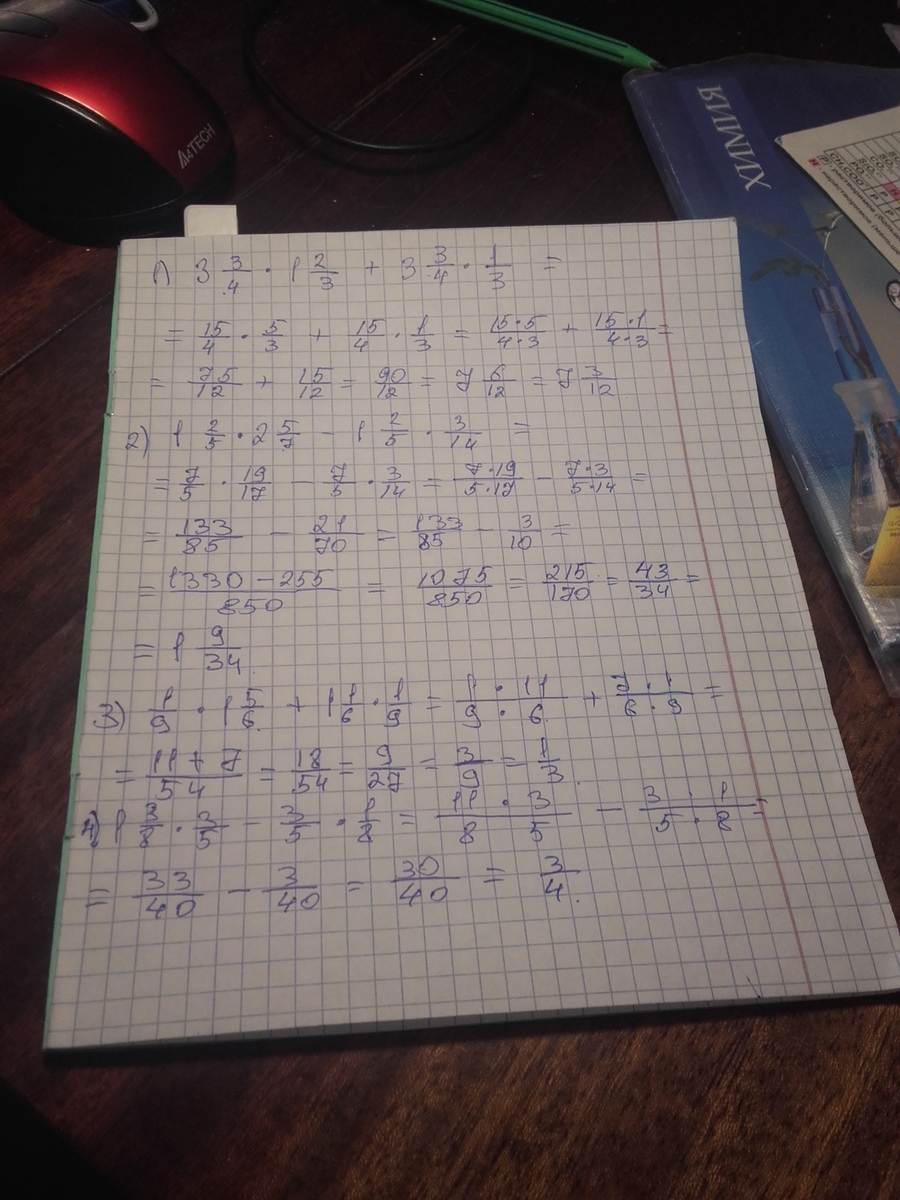 A4TECH
ХИМИЯ
1) 3 3/4 · 1 2/3 + 3 3/4 · 1/3 =
= 15/4 · 5/3 + 15/4 · 1/3 = 15·5/4·3 + 15·1/4·3 =
= 75/12 + 15/12 = 90/12 = 7 6/12 = 7 3/12
2) 1 2/5 · 2 5/7 - 1 2/5 · 3/14 =
= 7/5 · 19/17 - 7/5 · 3/14 = 7·19/5·17 - 7·3/5·14 =
= 133/85 - 21/70 = 133/85 - 3/10 =
= 1330-255/850 = 1075/850 = 215/170 = 43/34 =
= 1 9/34.
3) 1/9 · 1 5/6 + 1 1/6 · 1/9 = 1·11/9·6 + 7·1/6·9 =
= 11+7/54 = 18/54 = 9/27 = 3/9 = 1/3.
4) 1 3/8 · 3/5 - 3/5 · 1/8 = 11·3/8·5 - 3·1/5·8 =
= 33/40 - 3/40 = 30/40 = 3/4.